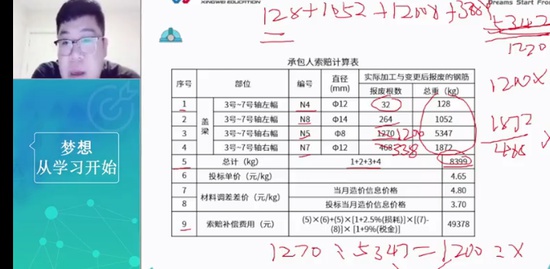 XINGWEI EDUCATION
Dreams Start From
128+1052+1200x+388
5342
1270
承包人索赔计算表
序号 部位 编号 直径(mm) 实际加工与变更后报废的钢筋
报废根数 总重(kg)
1 盖梁 3号~7号轴左幅 N4 Φ12 32 128
2 3号~7号轴左幅 N8 Φ12 264 1052
3 3号~7号轴右幅 N5 Φ8 1270 1200 5347
4 3号~7号轴右幅 N7 Φ12 468 338 1872
5 总计（kg） 1+2+3+4 8399
6 投标单价（元/kg） 4.65
7 材料调差差价（元/kg） 当月造价信息价格 4.80
8 投标当月造价信息价格 3.70
9 索赔补偿费用（元） (5)×(6)+(5)×[1+2.5%(损耗)]×[(7)-(8)]×[1+9%(税金)] 49378
1200X
1872
468
1270:5347=1200:x
梦想
从学习开始